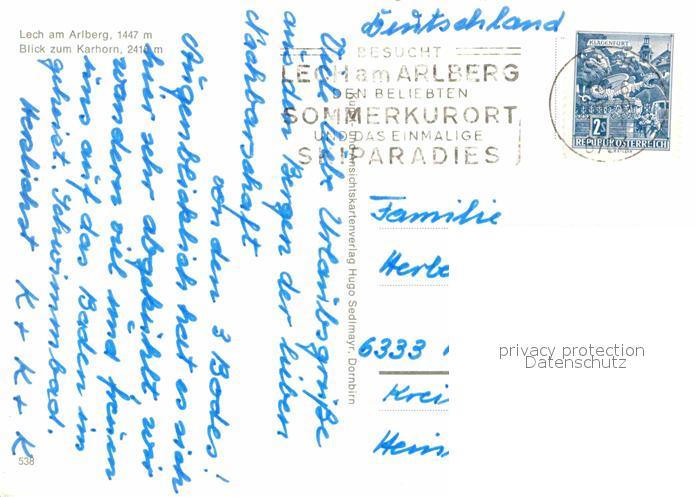 Lech am Arlberg, 1447 m
Blick zum Karhorn, 241 m
Viele liebe Urlaubsgrüße
aus den Bergen der lieben
Nachbarschaft
von den 3 Bodes!
Augenblicklich hat es sich
hier sehr abgekühlt wir
wandern viel und freuen
uns auf das Baden im
geheizt. Schwimmbad.
Herzlichst K + K + K
538
und Ansichtskartenverlag Hugo Sedlmayr, Dornbirn
BESUCHT
LECH am ARLBERG
DEN BELIEBTEN
SOMMERKURORT
UND DAS EINMALIGE
SKIPARADIES
KLAGENFURT
2s
REPUBLIK ÖSTERREICH
Deutschland
Familie
Herbe
6333
Krei
Hein
privacy protection
Datenschutz